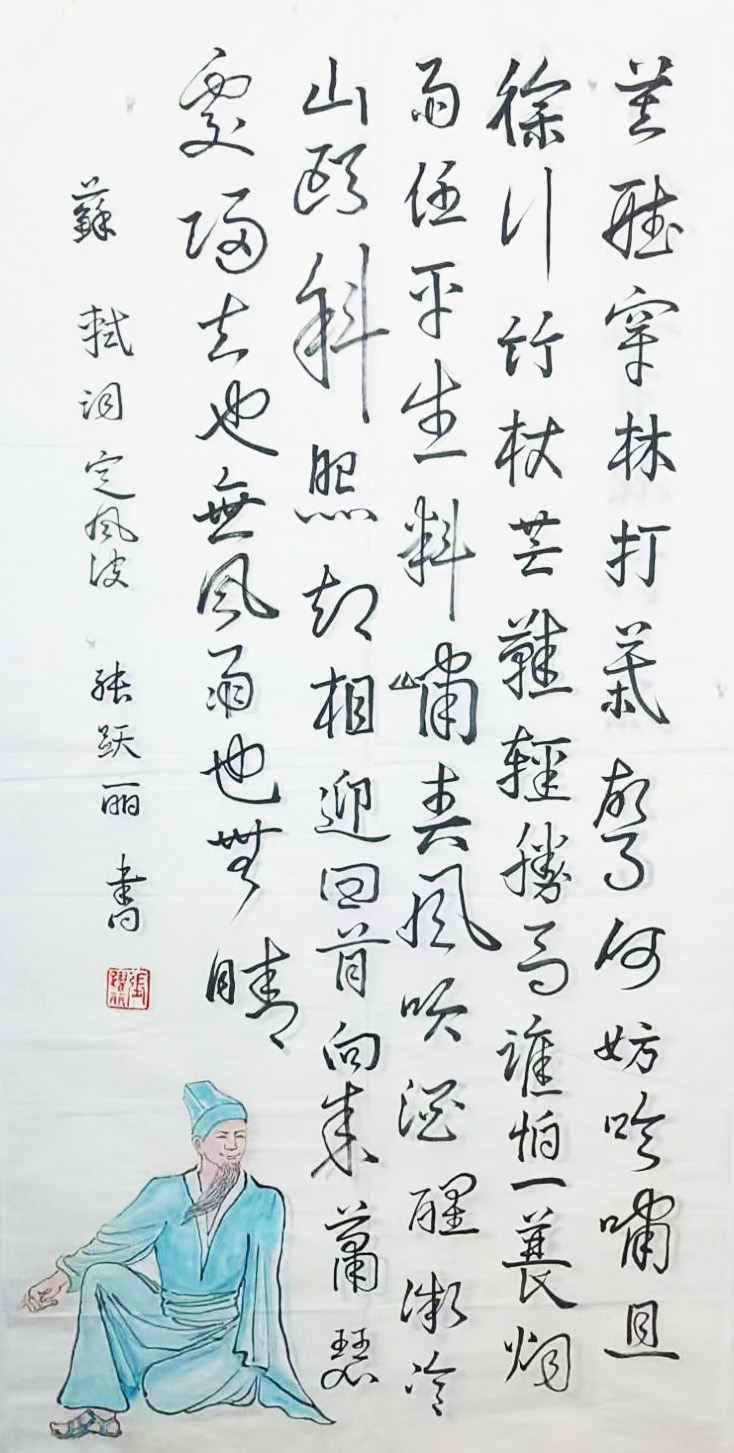 莫聽穿林打葉聲何妨吟嘯且
徐行竹杖芒鞋輕勝馬誰怕一蓑烟
雨任平生料峭春風吹酒醒微冷
山頭斜照却相迎回首向来蕭瑟
處歸去也無風雨也無晴
蘇軾词定風波 张跃丽書